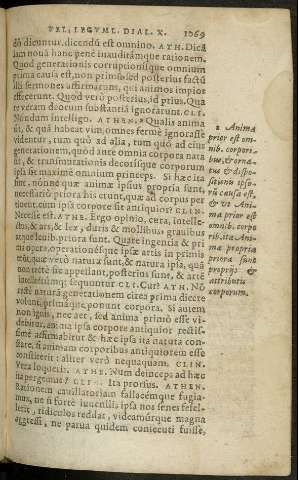 VEL, LEGVM. DIAL. X. 1069
do dicuntur, dicendũ est omnino. ATH. Dicã
iam nouã hanc penè inauditámque rationem.
Quod generationis corruptionísque omnium
prima causa est, non primo sed posterius factũ
illi sermones affirmarunt, qui animos impios
effecerunt. Quod verò posterius, id prius. Qua
re veram deorum substantiã ignorarunt. CLI.
Nondum intelligo. ATHEN. Qualis anima
sit, & quã habeat vim, omnes fermè ignorasse
videntur, cum quò ad alia, tum quò ad eius
generationem, quòd ante omnia corpora nata
sit, & transmutationis decorísque corporum
ipsa sit maximè omnium princeps. Si hæc ita
sint, nónne quæ animæ ipsius propria sunt,
necessariò priora his erunt, quæ ad corpus per
tinent, cùm ipsa corpore sit antiquior? CLIN.
Necesse est. ATHE. Ergo opinio, cura, intelle-
ctus, & ars, & lex, duris & mollibus, grauibus
atque leuibus priora sunt. Quare ingentia & pri
ma opera operationésque ipsæ artis in primis
sunt: quæ verò natura sunt, & natura ipsa, quã
non rectè sic appellant, posterius sunt, & artẽ
intellectúmque sequuntur. CLI. Cur? ATH. Nõ
rectè naturã generationem circa prima dicere
volunt, primáque ponunt corpora. Si autem
non ignis, nec aer, sed anima primò esse vi-
debitur, anima ipsa corpore antiquior rectis-
simè affirmabitur & hæc ipsa ita natura con-
stare, si animam corporibus antiquiorem esse
constiterit: aliter verò nequaquam. CLIN.
Vera loqueris. ATHE. Num deinceps ad hæc
ita pergimus? CLIN. Ita prorsus. ATHEN.
Rationem cauillatoriam fallacémque fugia-
mus, ne si fortè iuuenilis, ipsa nos senes fefel-
lerit, ridiculos reddat, videamúrque magna
aggressi, ne parua quidem consecuti fuisse,
Anima
prior est om-
nib. corpora.
bus, & orna-
tus & dispo-
sitionis ipso-
rũ causa est,
& vt Ani-
ma prior est
omnib. corpo
rib. ita Ani-
mæ propria
priora sunt
propriis &
attributis
corporum.